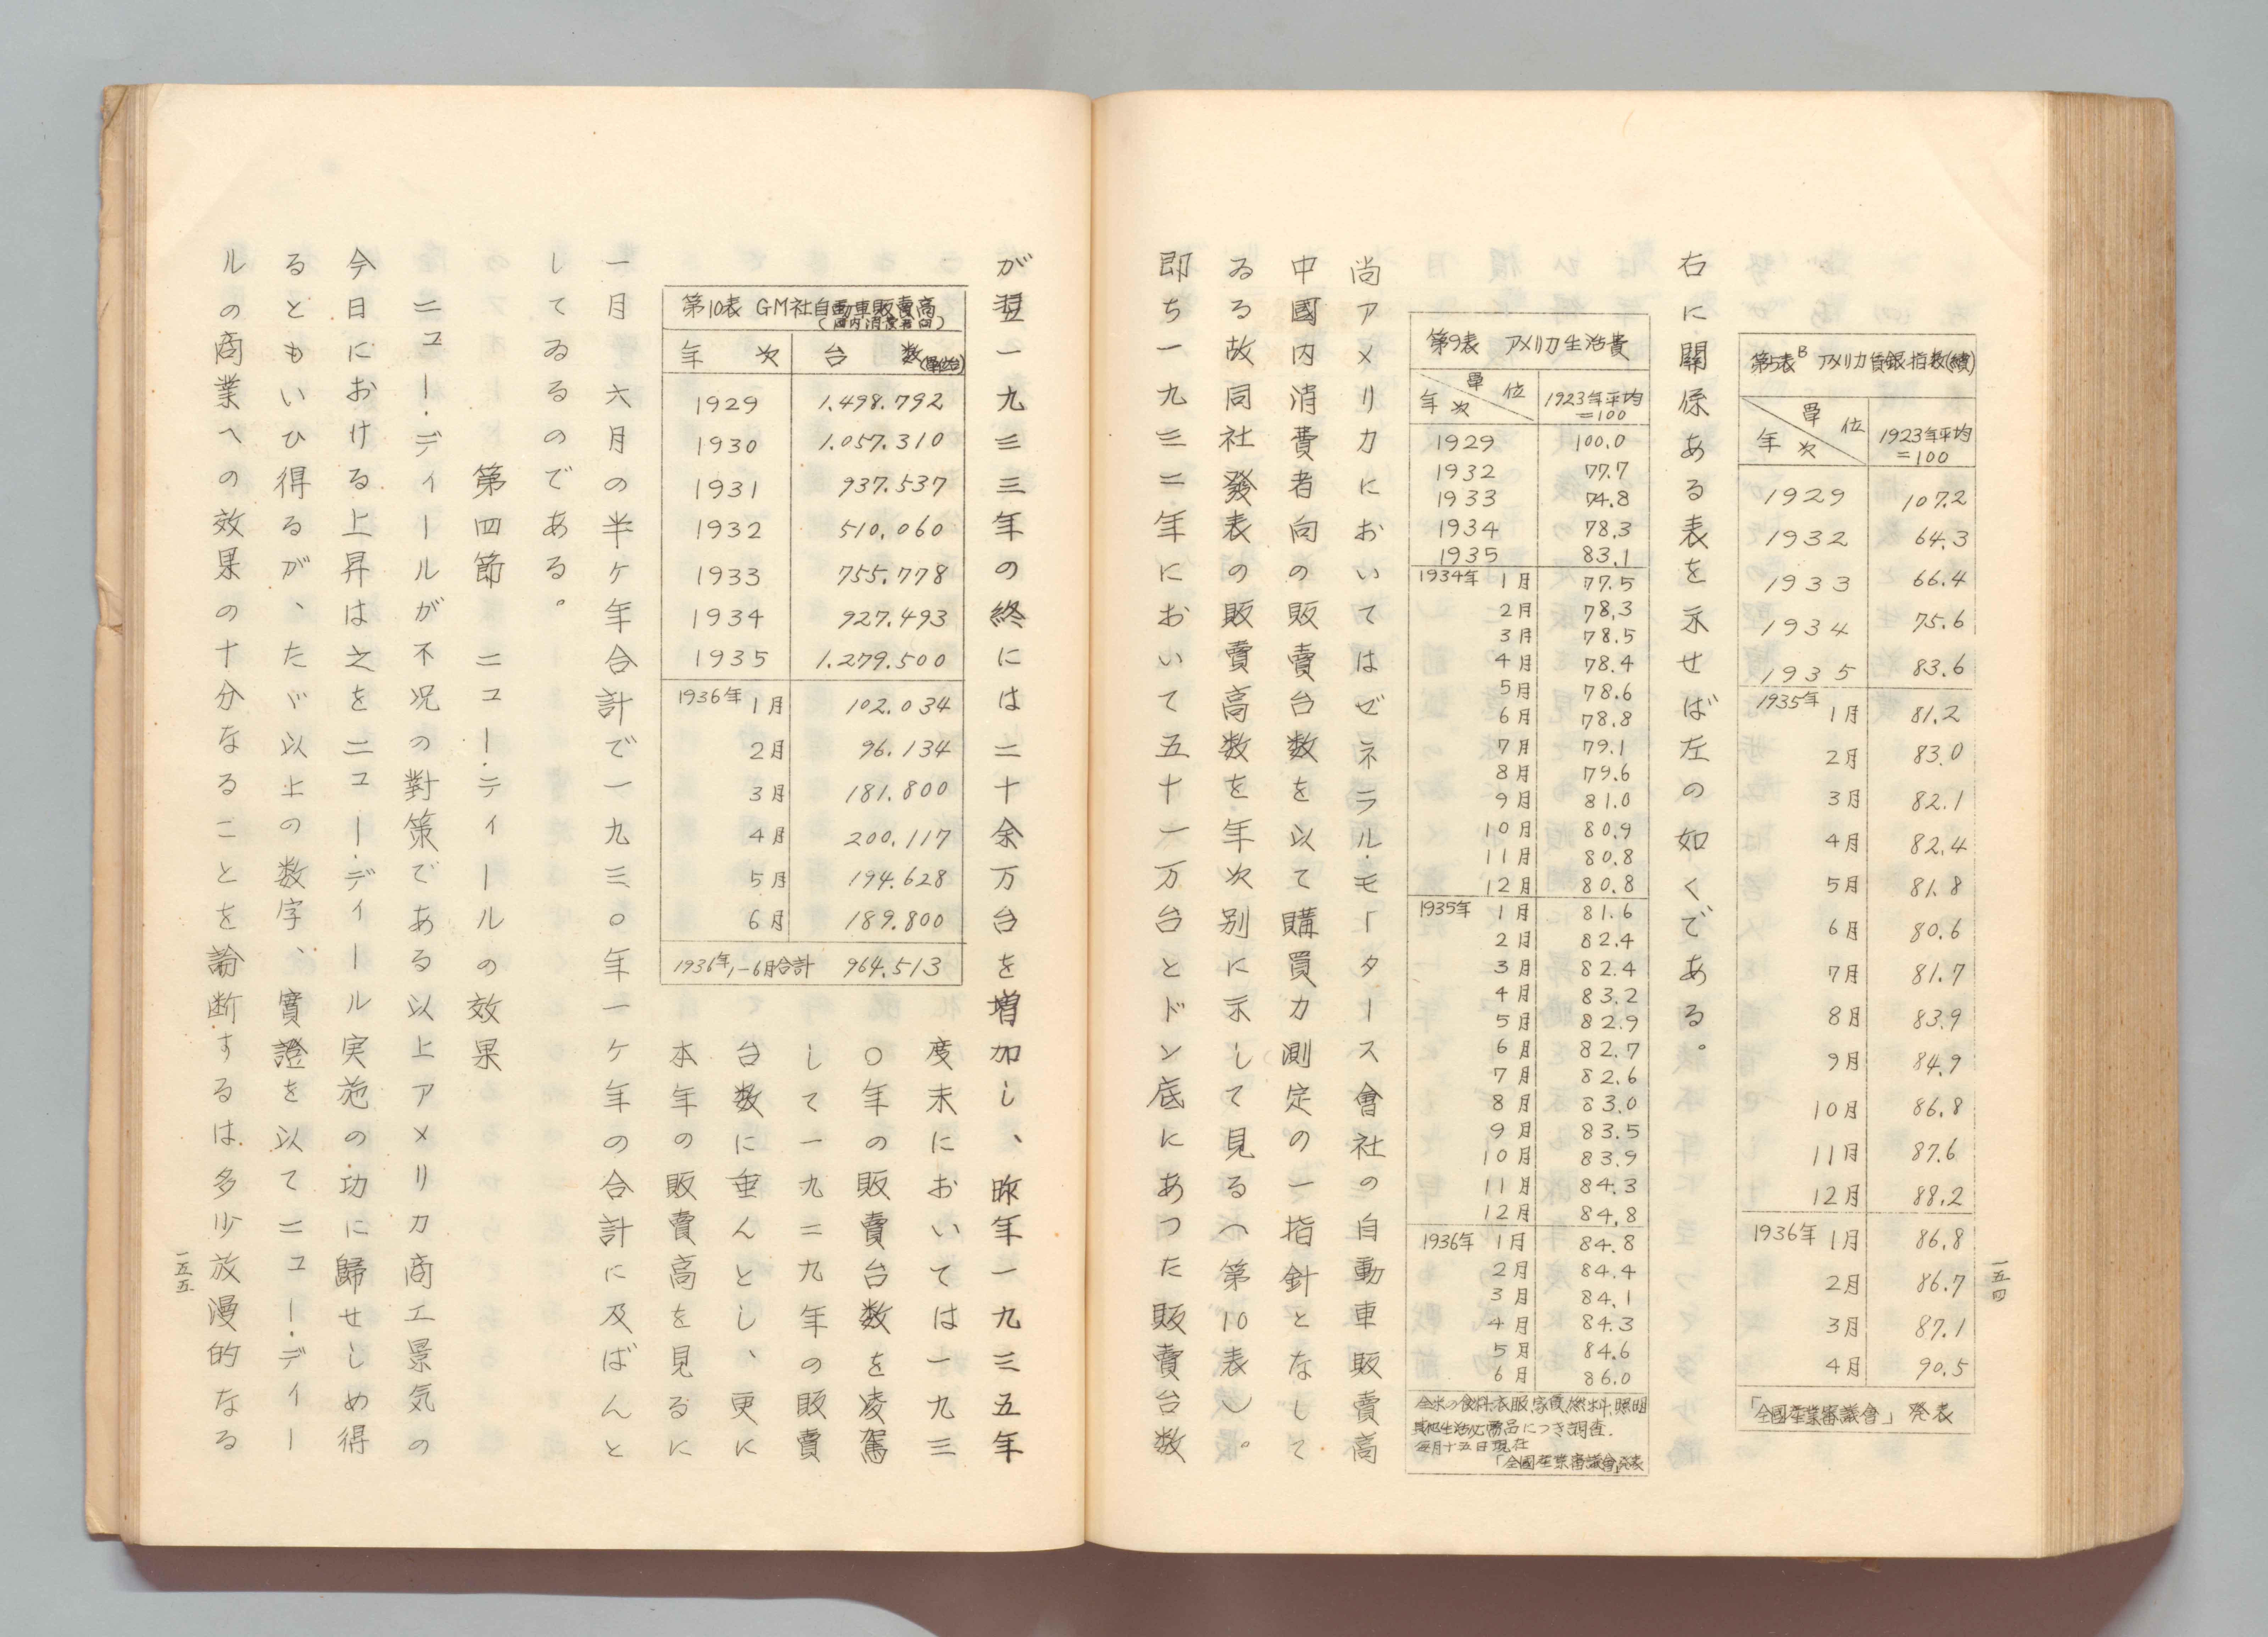 第5表B アメリカ賃銀指数(續)
年次 單位 1923年平均=100
1929 107.2
1932 64.3
1933 66.4
1934 75.6
1935 83.6
1935年 1月 81.2
2月 83.0
3月 82.1
4月 82.4
5月 81.8
6月 80.6
7月 81.7
8月 83.9
9月 84.9
10月 86.8
11月 87.6
12月 88.2
1936年 1月 86.8
2月 86.7
3月 87.1
4月 90.5
「全國産業審議會」発表
右に關係ある表を示せば左の如くである。
第9表 アメリカ生活費
年次 單位 1923年平均=100
1929 100.0
1932 77.7
1933 74.8
1934 78.3
1935 83.1
1934年 1月 77.5
2月 78.3
3月 78.5
4月 78.4
5月 78.6
6月 78.8
7月 79.1
8月 79.6
9月 81.0
10月 80.9
11月 80.8
12月 80.8
1935年 1月 81.6
2月 82.4
3月 82.4
4月 83.2
5月 82.9
6月 82.7
7月 82.6
8月 83.0
9月 83.5
10月 83.9
11月 84.3
12月 84.8
1936年 1月 84.8
2月 84.4
3月 84.1
4月 84.3
5月 84.6
6月 86.0
全米の食料、衣服、家賃、燃料、照明
其他生活必需品につき調査.
毎月十五日現在
「全國産業審議會」発表
尚アメリカにおいてはゼネラル・モータース會社の自動車販賣高
中國内消費者向の販賣台数を以て購買力測定の一指針となして
ゐる故同社發表の販賣高数を年次別に示して見る(第10表)。
即ち一九三二年において五十一万台とドン底にあつた販賣台数
一五四
が翌一九三三年の終には二十余万台を増加し、昨年一九三五年
度末においては一九三
〇年の販賣台数を凌駕
して一九二九年の販賣
台数に垂んとし、更に
本年の販賣高を見るに
第10表 GM社自動車販賣高
(國内消費者向)
年次 台数(單位台)
1929 1.498.792
1930 1.057.310
1931 937.537
1932 510.060
1933 755.778
1934 927.493
1935 1.279.500
1936年 1月 102.034
2月 96.134
3月 181.800
4月 200.117
5月 194.628
6月 189.800
1936年1-6月合計 964.513
一月 六月の半ヶ年合計で一九三〇年一ヶ年の合計に及ばんと
してゐるのである。
第四節 ニュー・ティールの效果
ニュー・ディールが不況の對策である以上アメリカ商工景気の
今日における上昇は之をニュー・ディール実施の功に歸せしめ得
るともいひ得るが、たゞ以上の数字、實證を以てニュー・ディー
ルの商業への效果の十分なることを論断するは多少放漫的なる
一五五